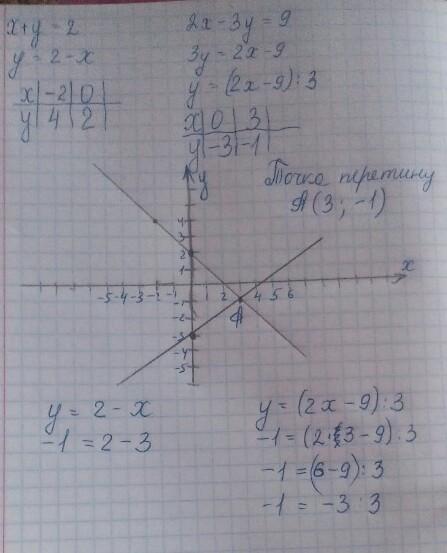 x+y=2
y=2-x
x|-2|0|
y|4|2|
2x-3y=9
3y=2x-9
y=(2x-9):3
x|0|3|
y|-3|-1|
Точка перетину
A(3;-1)
y
4
3
2
1
-5 -4 -3 -2 -1 2 4 5 6 x
-1
-2
-3
-4
-5
A
y=2-x
-1=2-3
y=(2x-9):3
-1=(2·3-9):3
-1=(6-9):3
-1=-3:3